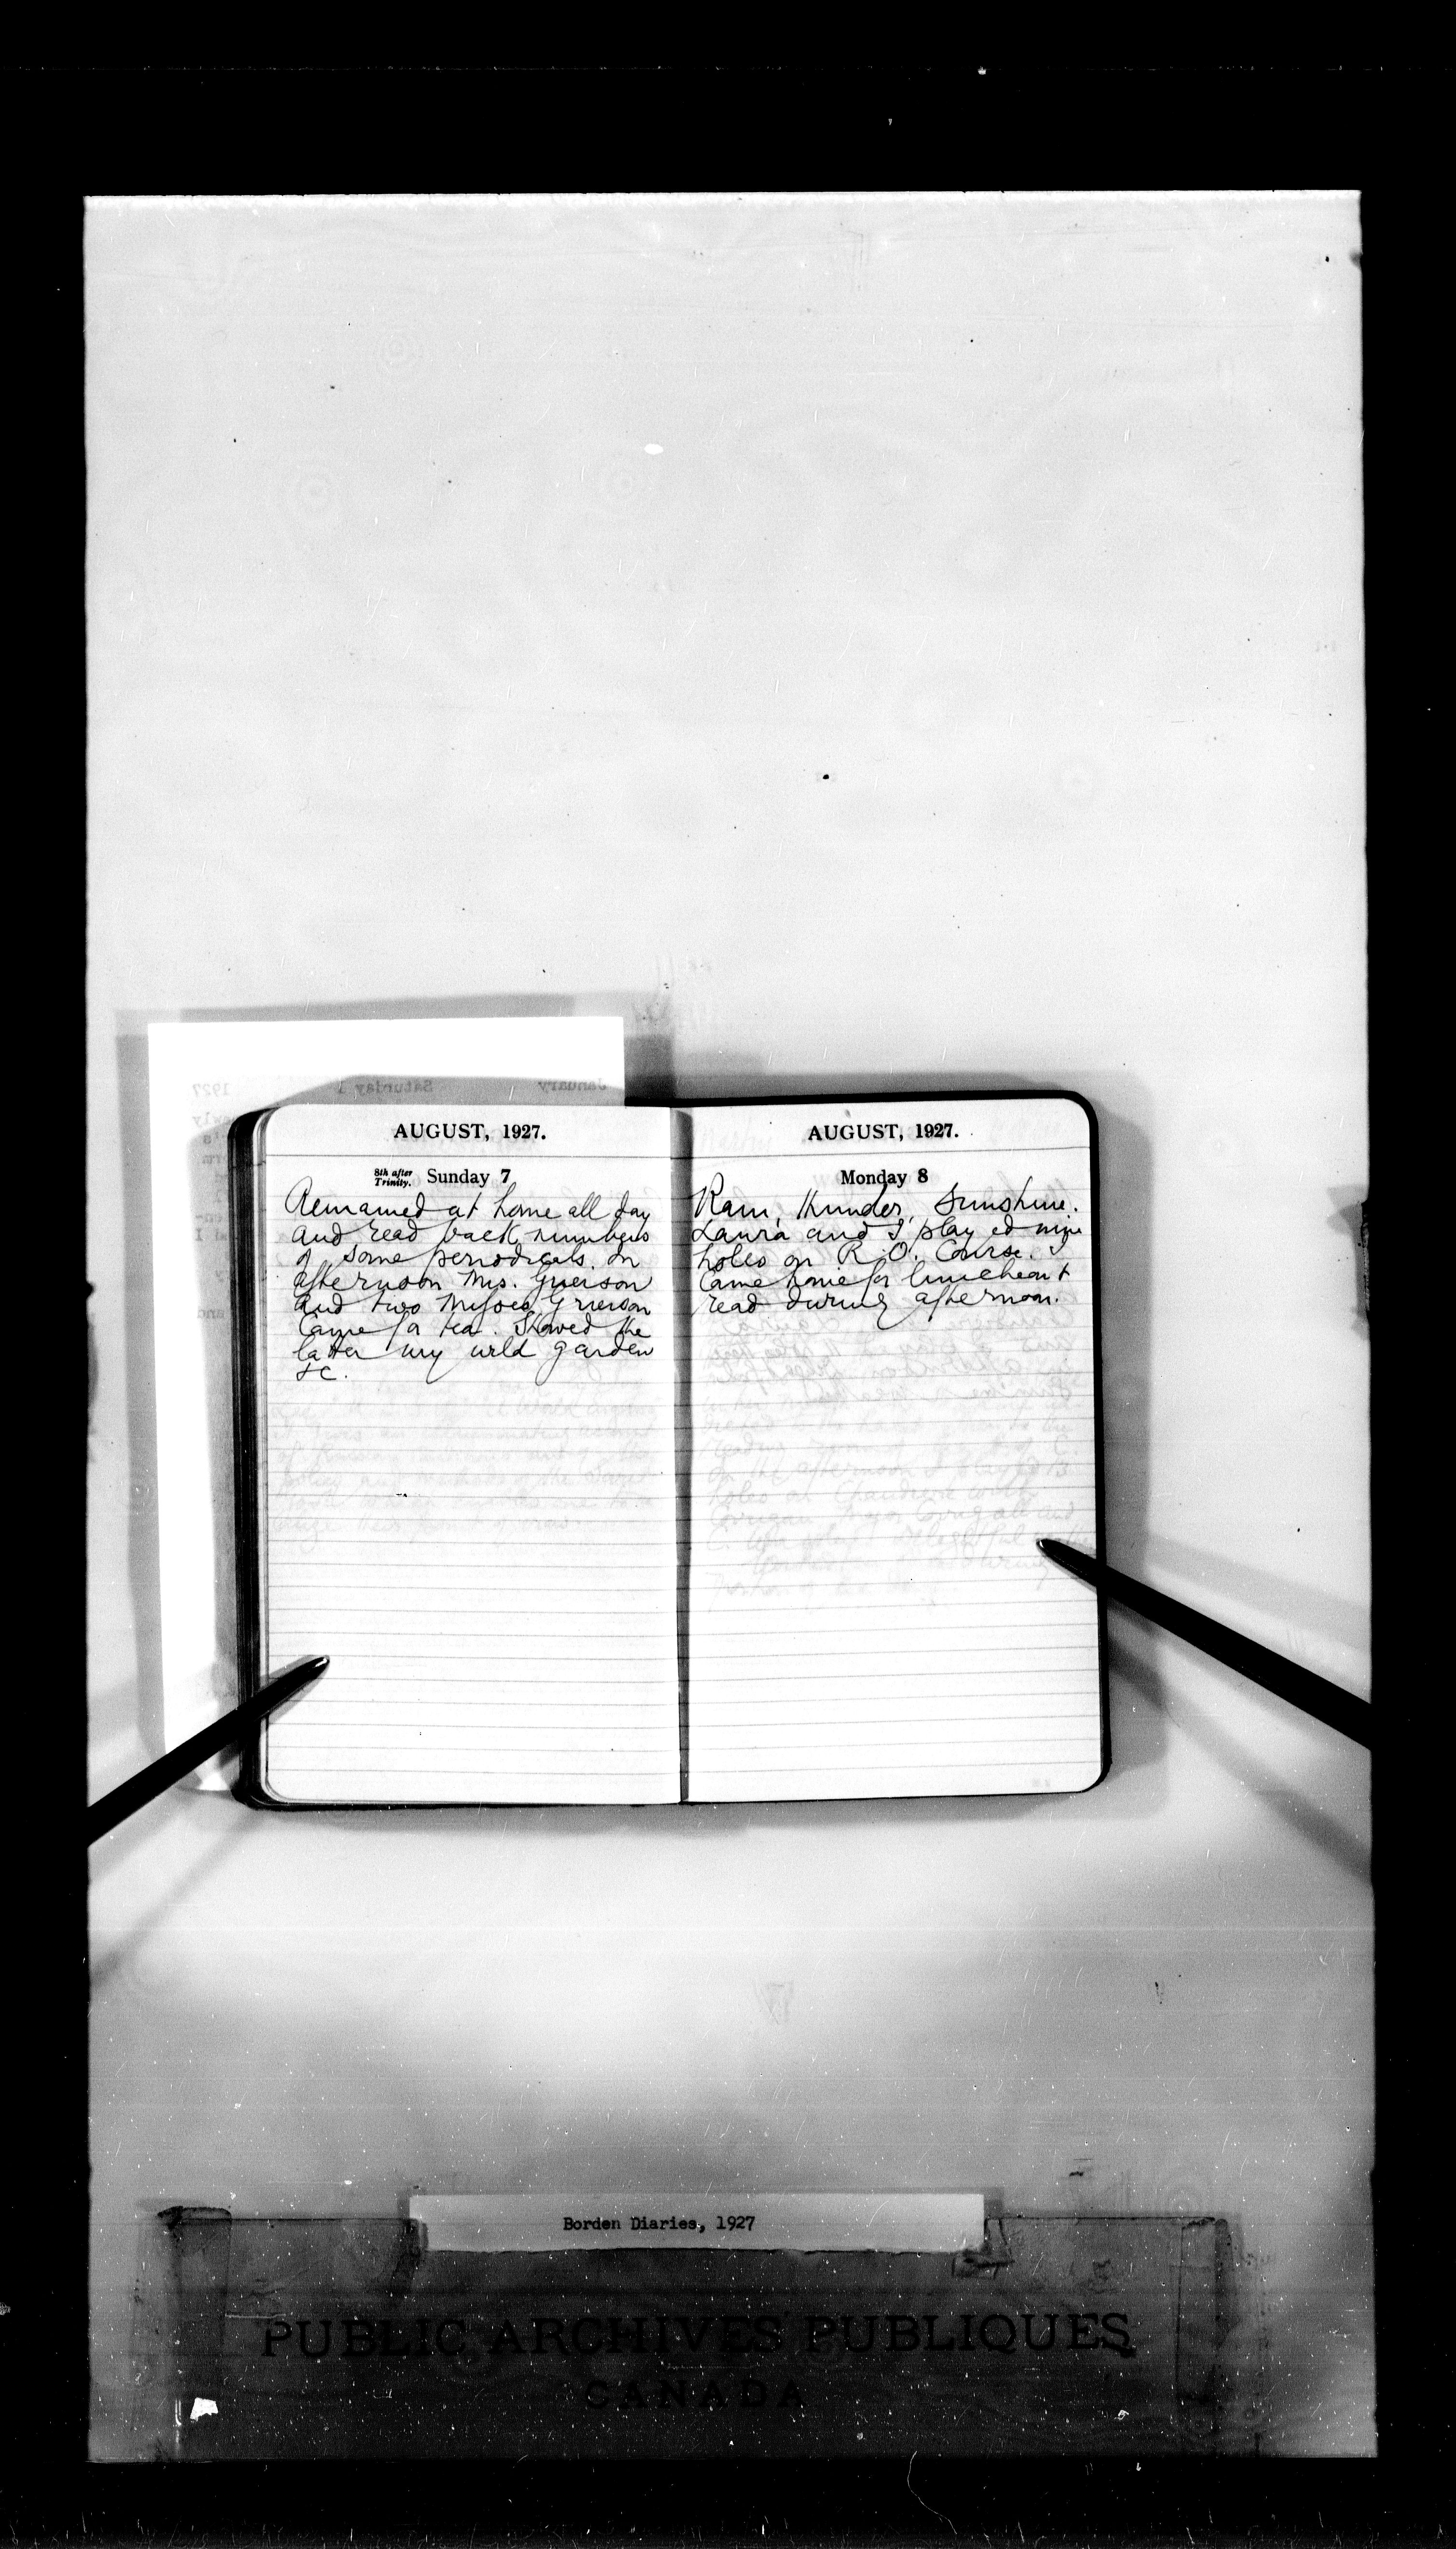 AUGUST, 1927.
8th after Trinity. Sunday 7
Remained at home all day
and read back numbers
of some periodicals. In
afternoon Mrs. Grierson
and two Misses Grierson
came for tea. Showed the
latter my wild garden
&c.
AUGUST, 1927.
Monday 8
Rain, thunder, sunshine.
Laura and I played nine
holes on R. O. Course. I
came home for luncheon &
read during afternoon.
Borden Diaries, 1927
PUBLIC ARCHIVES PUBLIQUES
CANADA